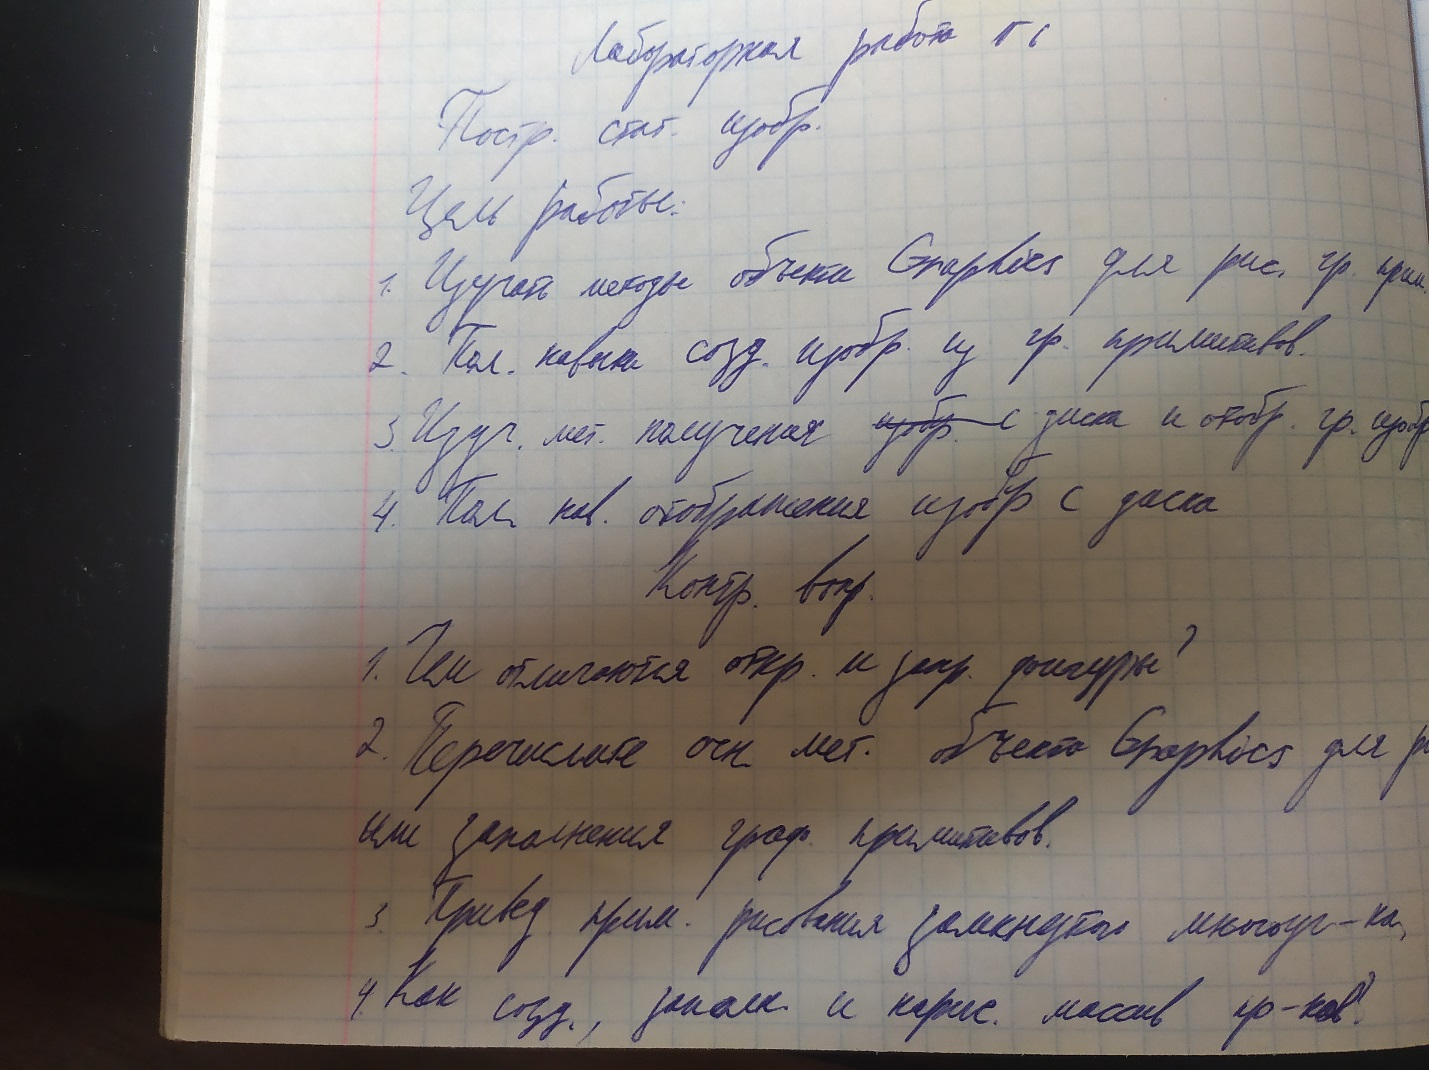 Лабораторная работа
Постр. стат. изобр.
Цель работы:
1. Изучать методы объекта Graphics для рис. гр. прим.
2. Пол. навыки созд. изобр. из гр. примитивов.
3. Изуч. мет. получения изобр. с диска и отобр. гр. изобр
4. Пол. нав. отображения изобр с диска
Контр. вопр.
1. Чем отличаются откр. и закр. фигуры?
2. Перечислите осн. мет. объекта Graphics для
или заполнения граф. примитивов.
3. Привед. прим. рисования замкнутого многоуг-ка,
4. Как созд., заполн. и нарис. массив пр-ков?